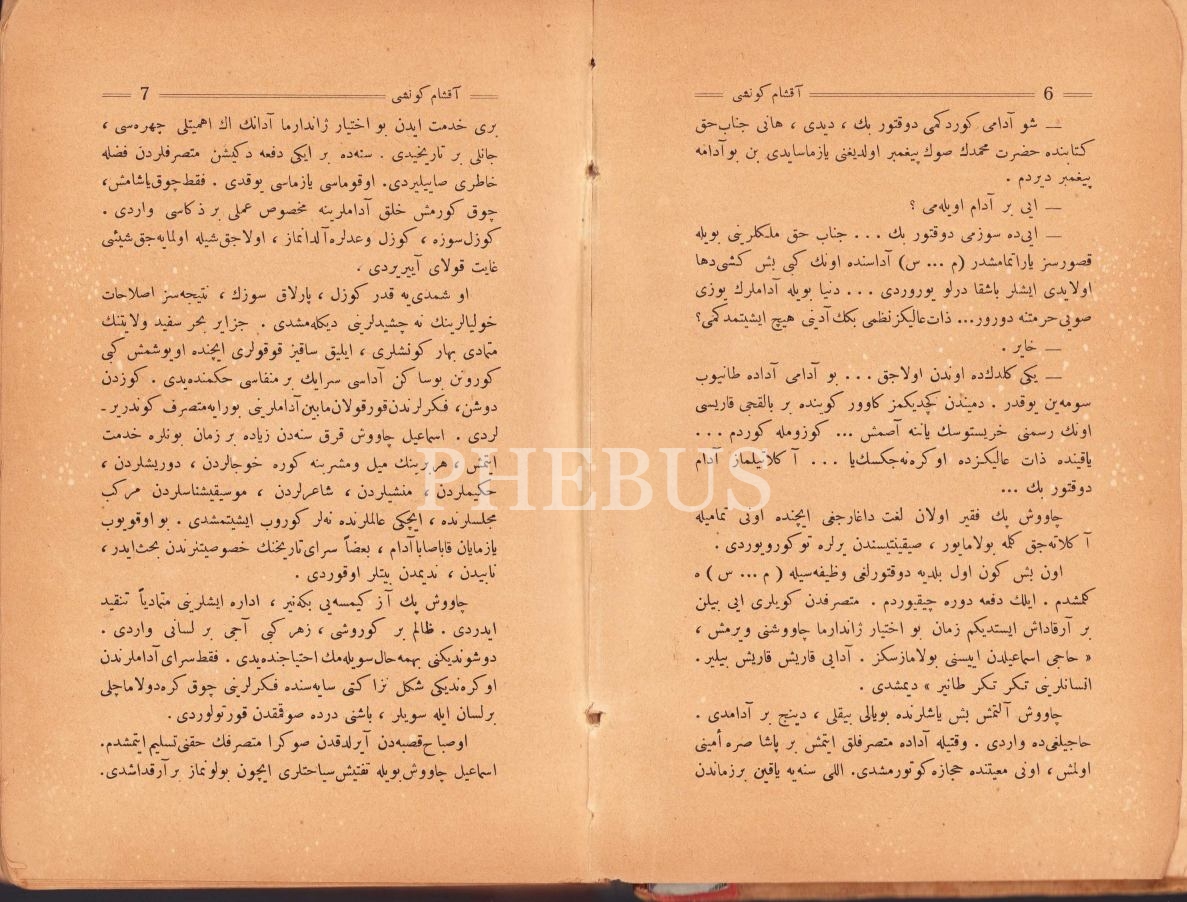 6 آقشام كونشى
— شو آدامى كوردكمى دوقتور بك ، ديدى ، هانى جناب حق
كتابنده حضرت محمدك صوك پيغمبر اولديغنى يازماسايدى بن بوآدامه
پيغمبر ديردم .
— ايى بر آدام اويله‌مى ؟
— ايى‌ده سوزمى دوقتور بك ... جناب حق ملكلرينى بويله
قصورسز ياراتمامشدر (م ... س) آداسنده اونك كبى بش كشى‌دها
اولايدى ايشلر باشقا درلو يوروردى ... دنيا بويله آداملرك يوزى
صويى حرمتنه دورور... ذات‌عاليكز نظمى بكك آدينى هيچ ايشيتمدكمى؟
— خاير .
— يكى كلدك‌ده اوندن اولاجق ... بو آدامى آداده طانيوب
سومه‌ين يوقدر . دميندن كچديكمز كاوور كوينده بر بالقجى قاريسى
اونك رسمنى خريستوسك ياننه آصمش ... كوزومله كوردم ...
ياقينده ذات عاليكزده اوكره‌نه‌جكسك‌يا ... آكلاتيلماز آدام
دوقتور بك ...
چاووش پك فقير اولان لغت داغارجغى ايچنده اونى تماميله
آكلاته‌جق كلمه بولامايور ، صيقينتيسندن يرلره توكورويوردى .
اون بش كون اول بلديه دوقتورلغى وظيفه‌سيله ( م ... س ) ه
كلمشدم . ايلك دفعه دوره چيقيوردم . متصرفدن كويلرى ايى بيلن
بر آرقاداش ايستديكم زمان بو اختيار ژاندارما چاووشنى ويرمش ،
« حاجى اسماعيلدن اييسنى بولامازسكز . آدايى قاريش قاريش بيلير .
انسانلرينى تكر تكر طانير » ديمشدى .
چاووش آلتمش بش ياشلرنده بويالى بيقلى ، دينج بر آدامدى .
حاجيلغى‌ده واردى . وقتيله آداده متصرفلق ايتمش بر پاشا صره أمينى
اولمش ، اونى معيتنده حجازه كوتورمشدى. اللى سنه‌يه ياقين برزماندن
7 آقشام كونشى
برى خدمت ايدن بو اختيار ژاندارما آدانك اك اهميتلى چهره‌سى ،
جانلى بر تاريخيدى . سنه‌ده بر ايكى دفعه دكيشن متصرفلردن فضله
خاطرى صاييليردى. اوقوماسى يازماسى يوقدى . فقط چوق‌ياشامش،
چوق كورمش خلق آداملرينه مخصوص عملى بر ذكاسى واردى .
كوزل‌سوزه ، كوزل وعدلره آلدانماز ، اولاجق‌شيله اولمايه‌جق‌شيئى
غايت قولاى آييريردى .
او شمدى‌يه قدر كوزل ، پارلاق سوزك ، نتيجه‌سز اصلاحات
خوليالرينك نه چشيدلرينى ديكله‌مشدى . جزاير بحر سفيد ولايتنك
متمادى بهار كونشلرى ، ايليق ساقيز قوقولرى ايچنده اويوشمش كبى
كورونن بوساكن آداسى سرايك بر منفاسى حكمنده‌يدى . كوزدن
دوشن، فكرلرندن‌قورقولان‌مابين‌آداملرينى بورايه‌متصرف كوندرير-
لردى . اسماعيل چاووش قرق سنه‌دن زياده بر زمان بونلره خدمت
ايتمش ، هربرينك ميل ومشربنه كوره خوجالردن ، دوريشلردن ،
حكيملردن ، منشيلردن ، شاعرلردن ، موسيقيشناسلردن مركب
مجلسلرنده ، ايچكى عالملرنده نه‌لر كوروب ايشيتمشدى . بو اوقويوب
يازمايان قاباصاباآدام ، بعضاً سراى‌تاريخنك خصوصيتنرندن بحث‌ايدر ،
نابيدن ، نديمدن بيتلر اوقوردى .
چاووش پك آز كيمسه‌يى بكه‌نير ، اداره ايشلرينى متمادياً تنقيد
ايدردى . ظالم بر كوروشى ، زهر كبى آجى بر لسانى واردى .
دوشونديكنى بهمه‌حال سويله‌مك احتياجنده‌يدى . فقط سراى آداملرندن
اوكره‌نديكى شكل نزاكتى سايه‌سنده فكرلرينى چوق كره‌دولاماجلى
برلسان ايله سويلر ، باشنى درده صوقمقدن قورتولوردى .
اوصباح قصبه‌دن آيرلدقدن صوكرا متصرفك حقنى تسليم ايتمشدم.
اسماعيل چاووش‌بويله تفتيش‌سياحتلرى ايچون بولونماز برآرقداشدى.
PHEBUS